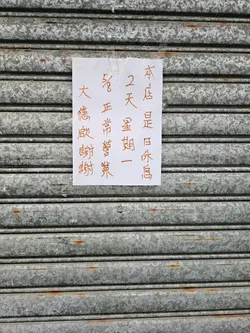 本店是日休息
2天星期一
正常營業
大德啟謝謝